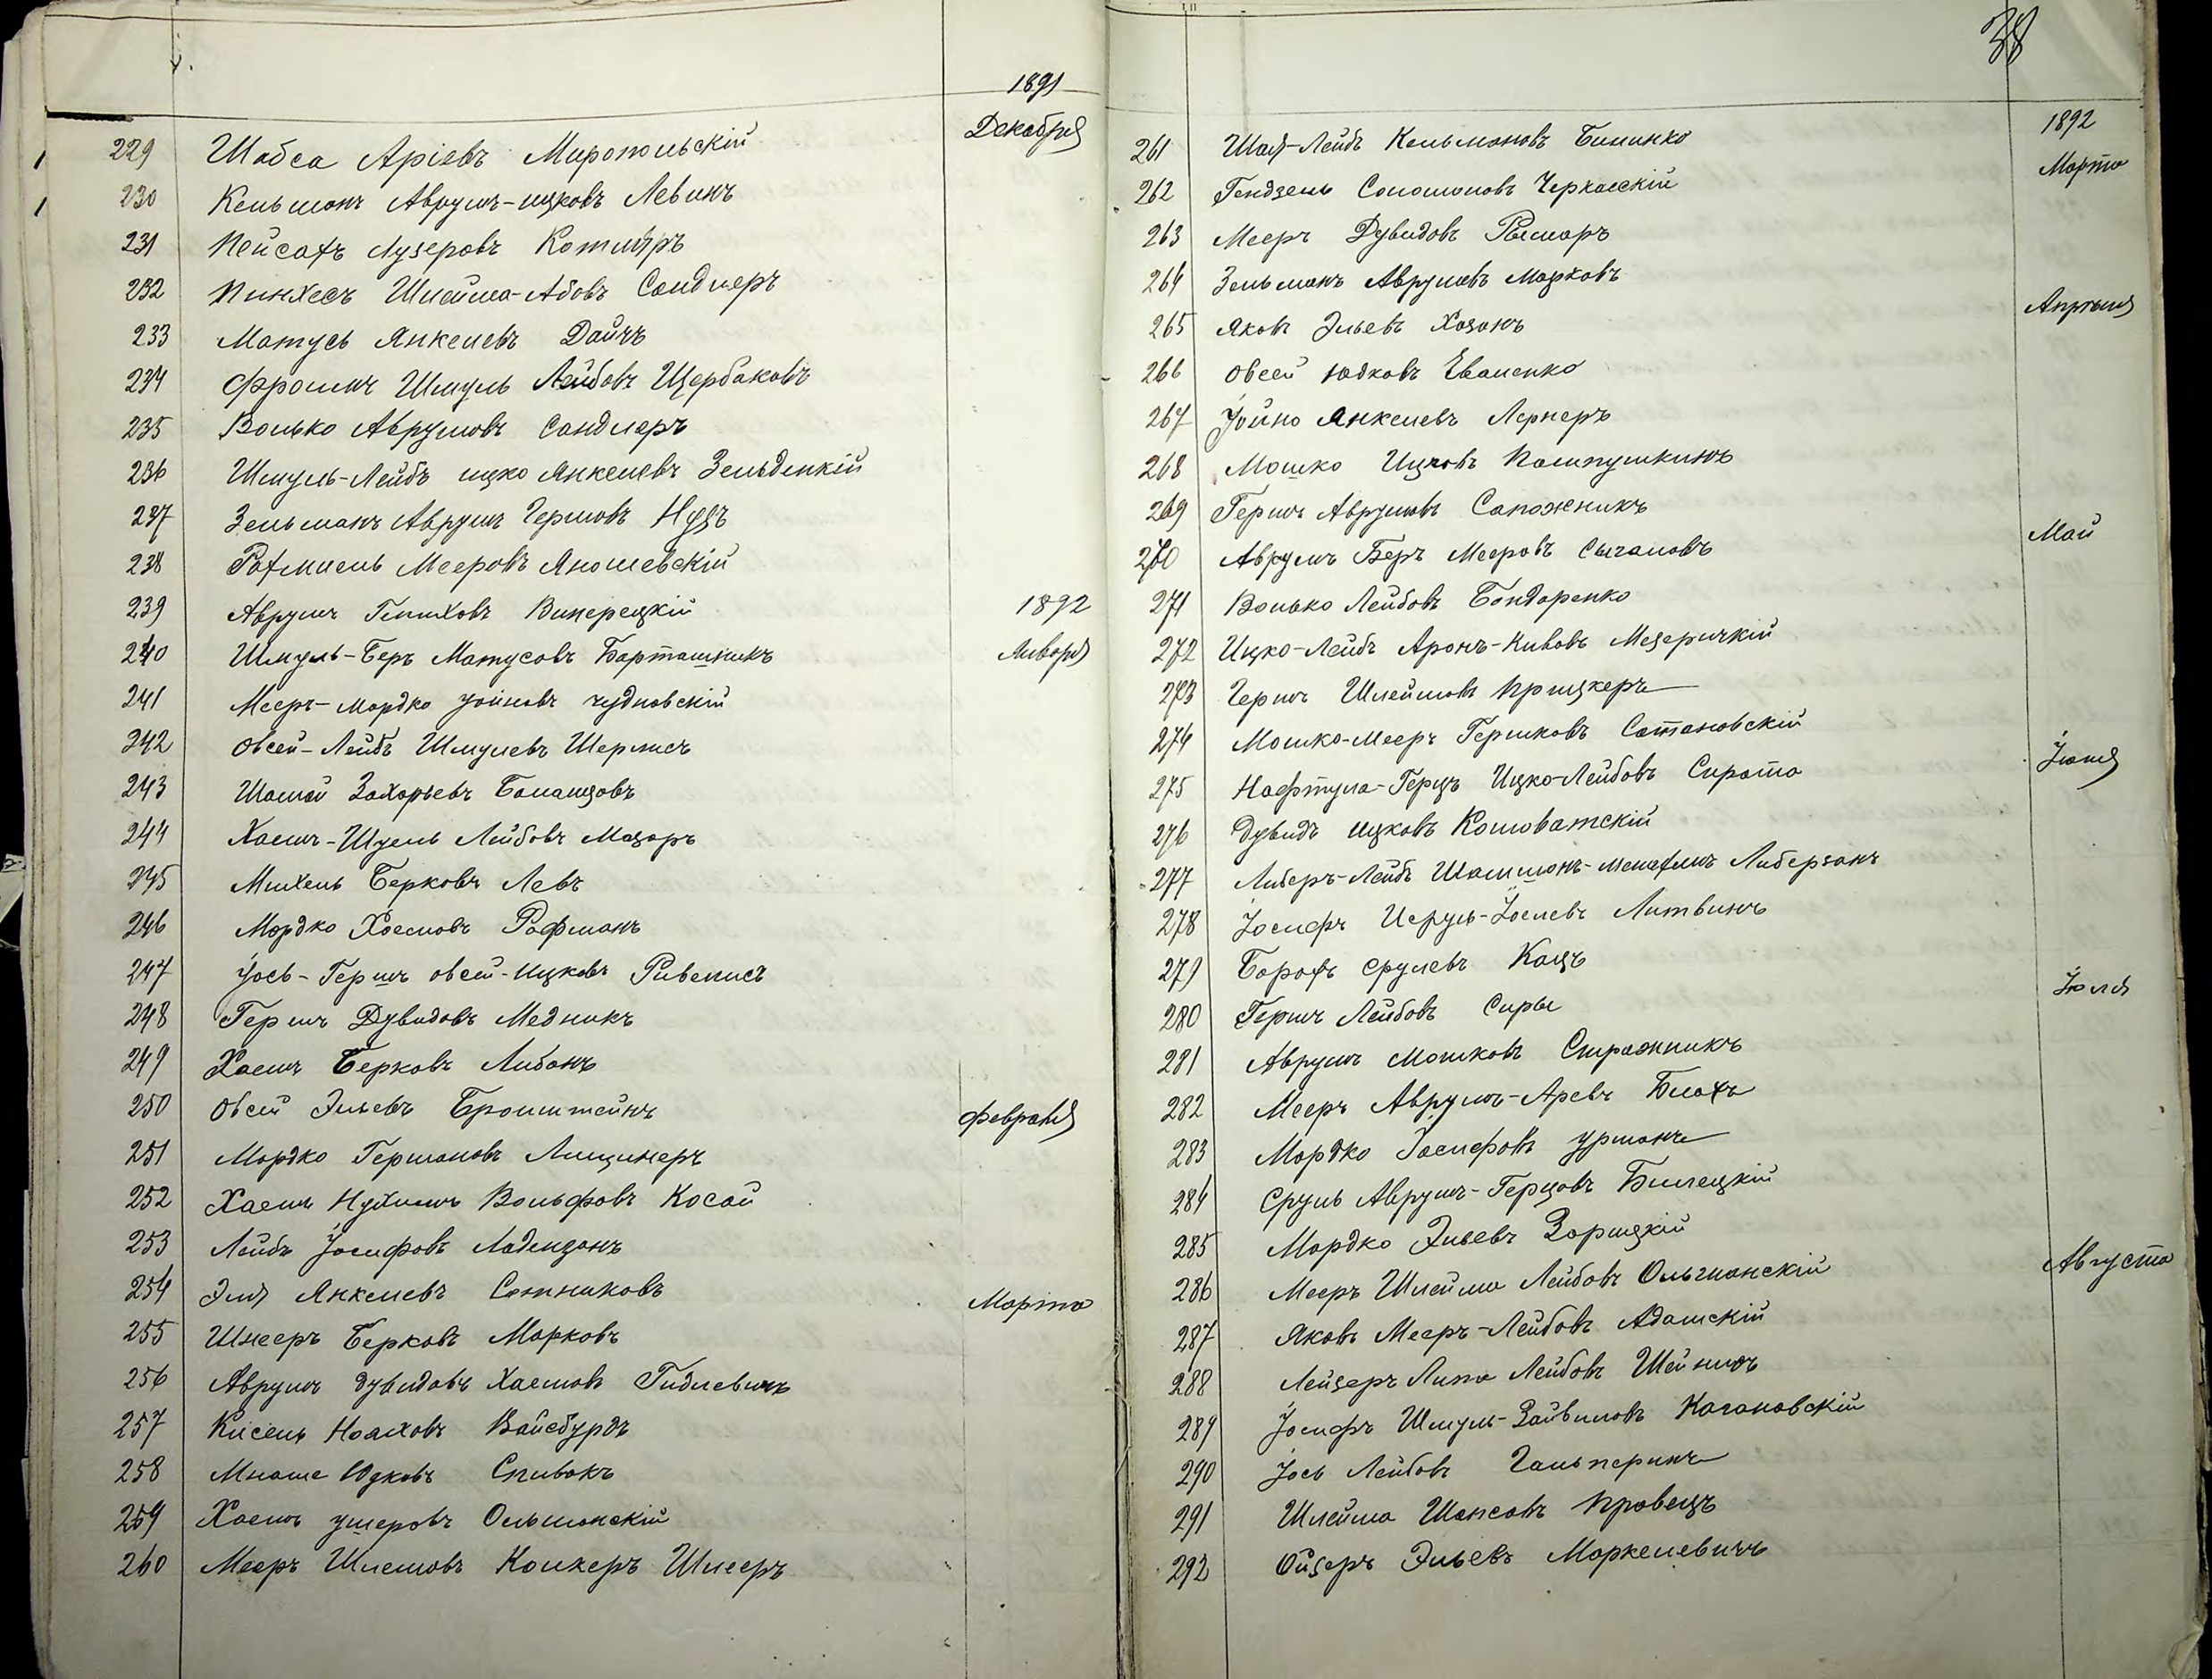 1891
Декабря
229 Шабса Аріевъ Миропольскій
230 Кельманъ Аврумъ-ицковъ Левинъ
231 Пейсахъ Лузеровъ Котляръ
232 Пинхесъ Шлейма-Абовъ Сандлеръ
233 Матусь Янкелевъ Дайчъ
234 Фроимъ Шмуль Лейбовъ Щербаковъ
235 Волько Аврумовъ Сандлеръ
236 Шмуль-Лейбъ ицко Янкелевъ
237 Зельманъ Аврумъ Гершовъ Нудъ
238 Рахмиель Мееровъ Яношевскій
1892
239 Аврумъ Винерецкій
Января
240 Шмуль-Беръ Матусовъ Барташникъ
241 Мееръ-Мордко Іойновъ Чудновскій
242 Овсей-Лейбъ Шмулевъ Шерлисъ
243 Захарьевъ Балащовъ
244 Хаимъ-Шуель Лейбовъ Мазоръ
245 Михель Берковъ Левъ
246 Мордко Хаемовъ Рафманъ
247 Іось-Гершъ овсей-ицковъ Ривелисъ
248 Гершъ Дувидовъ Медникъ
249 Хаемъ Берковъ Либанъ
250 Овсей Эльевъ Бронштейнъ
Февраля
251 Мордко Гершановъ Лищинеръ
252 Хаемъ Нухимъ Вольфовъ Косой
253 Лейбъ Іосифовъ Ладензонъ
254 Эля Янкелевъ Сотниковъ
Марта
255 Шнееръ Берковъ Марковъ
256 Аврумъ дувидовъ Хаемовъ Гидлевичъ
257 Кисель Ноаховъ Вайсбурдъ
258 Мнаше Юдковъ Спивакъ
259 Хаемъ ушеровъ Ольшанскій
260 Мееръ Шлемовъ Колкеръ Шлееръ
38
1892
261 Шая-Лейбъ Кельмановъ Билинко
Марта
262 Гендзель Соломоновъ Черкасскій
263 Мееръ Дувидовъ Рымаръ
264 Зельманъ Аврумовъ Марковъ
Апрѣля
265 Яковъ Эльевъ Хазанъ
266 Овсей Юдковъ Еваленко
267 Іойно Янкелевъ Лернеръ
268 Мошко Ицковъ Помпушкинъ
269 Гершъ Аврумовъ Сапожникъ
Май
270 Аврумъ Беръ Мееровъ Сычановъ
271 Волько Лейбовъ Бондаренко
272 Ицко-Лейбъ Аронъ-Кивовъ Мезеричкій
273 Гершъ Шлеймовъ Прицкеръ
274 Мошко-Мееръ Гершковъ Сатановскій
Іюня
275 Нафтула-Герцъ Ицко-Лейбовъ Сирота
276 Дувидъ ицковъ Коловатскій
277 Либеръ-Лейбъ Шамшонъ-менахемъ Либерзонъ
278 Іосифъ Исруль-Іоелевъ Литвинъ
279 Борохъ Срулевъ Кацъ
Іюля
280 Гершъ Лейбовъ Сиры
281 Аврумъ Мошковъ Стражникъ
282 Мееръ Аврумъ-Аревъ Блохъ
283 Мордко Іосифовъ Урманъ
284 Сруль Аврумъ-Герцовъ Билецкій
285 Мордко Эльевъ Зорицкій
Августа
286 Мееръ Шлейма Лейбовъ Ольшанскій
287 Яковъ Мееръ-Лейбовъ Адамскій
288 Лейзеръ Липа Лейбовъ Шейнинъ
289 Іосифъ Шмуль-Зайвиловъ Кагановскій
290 Іось Лейбовъ Гальперинъ
291 Шлейма Шапсовъ Кравецъ
292 Ойзеръ Эльевъ Маркелевичъ